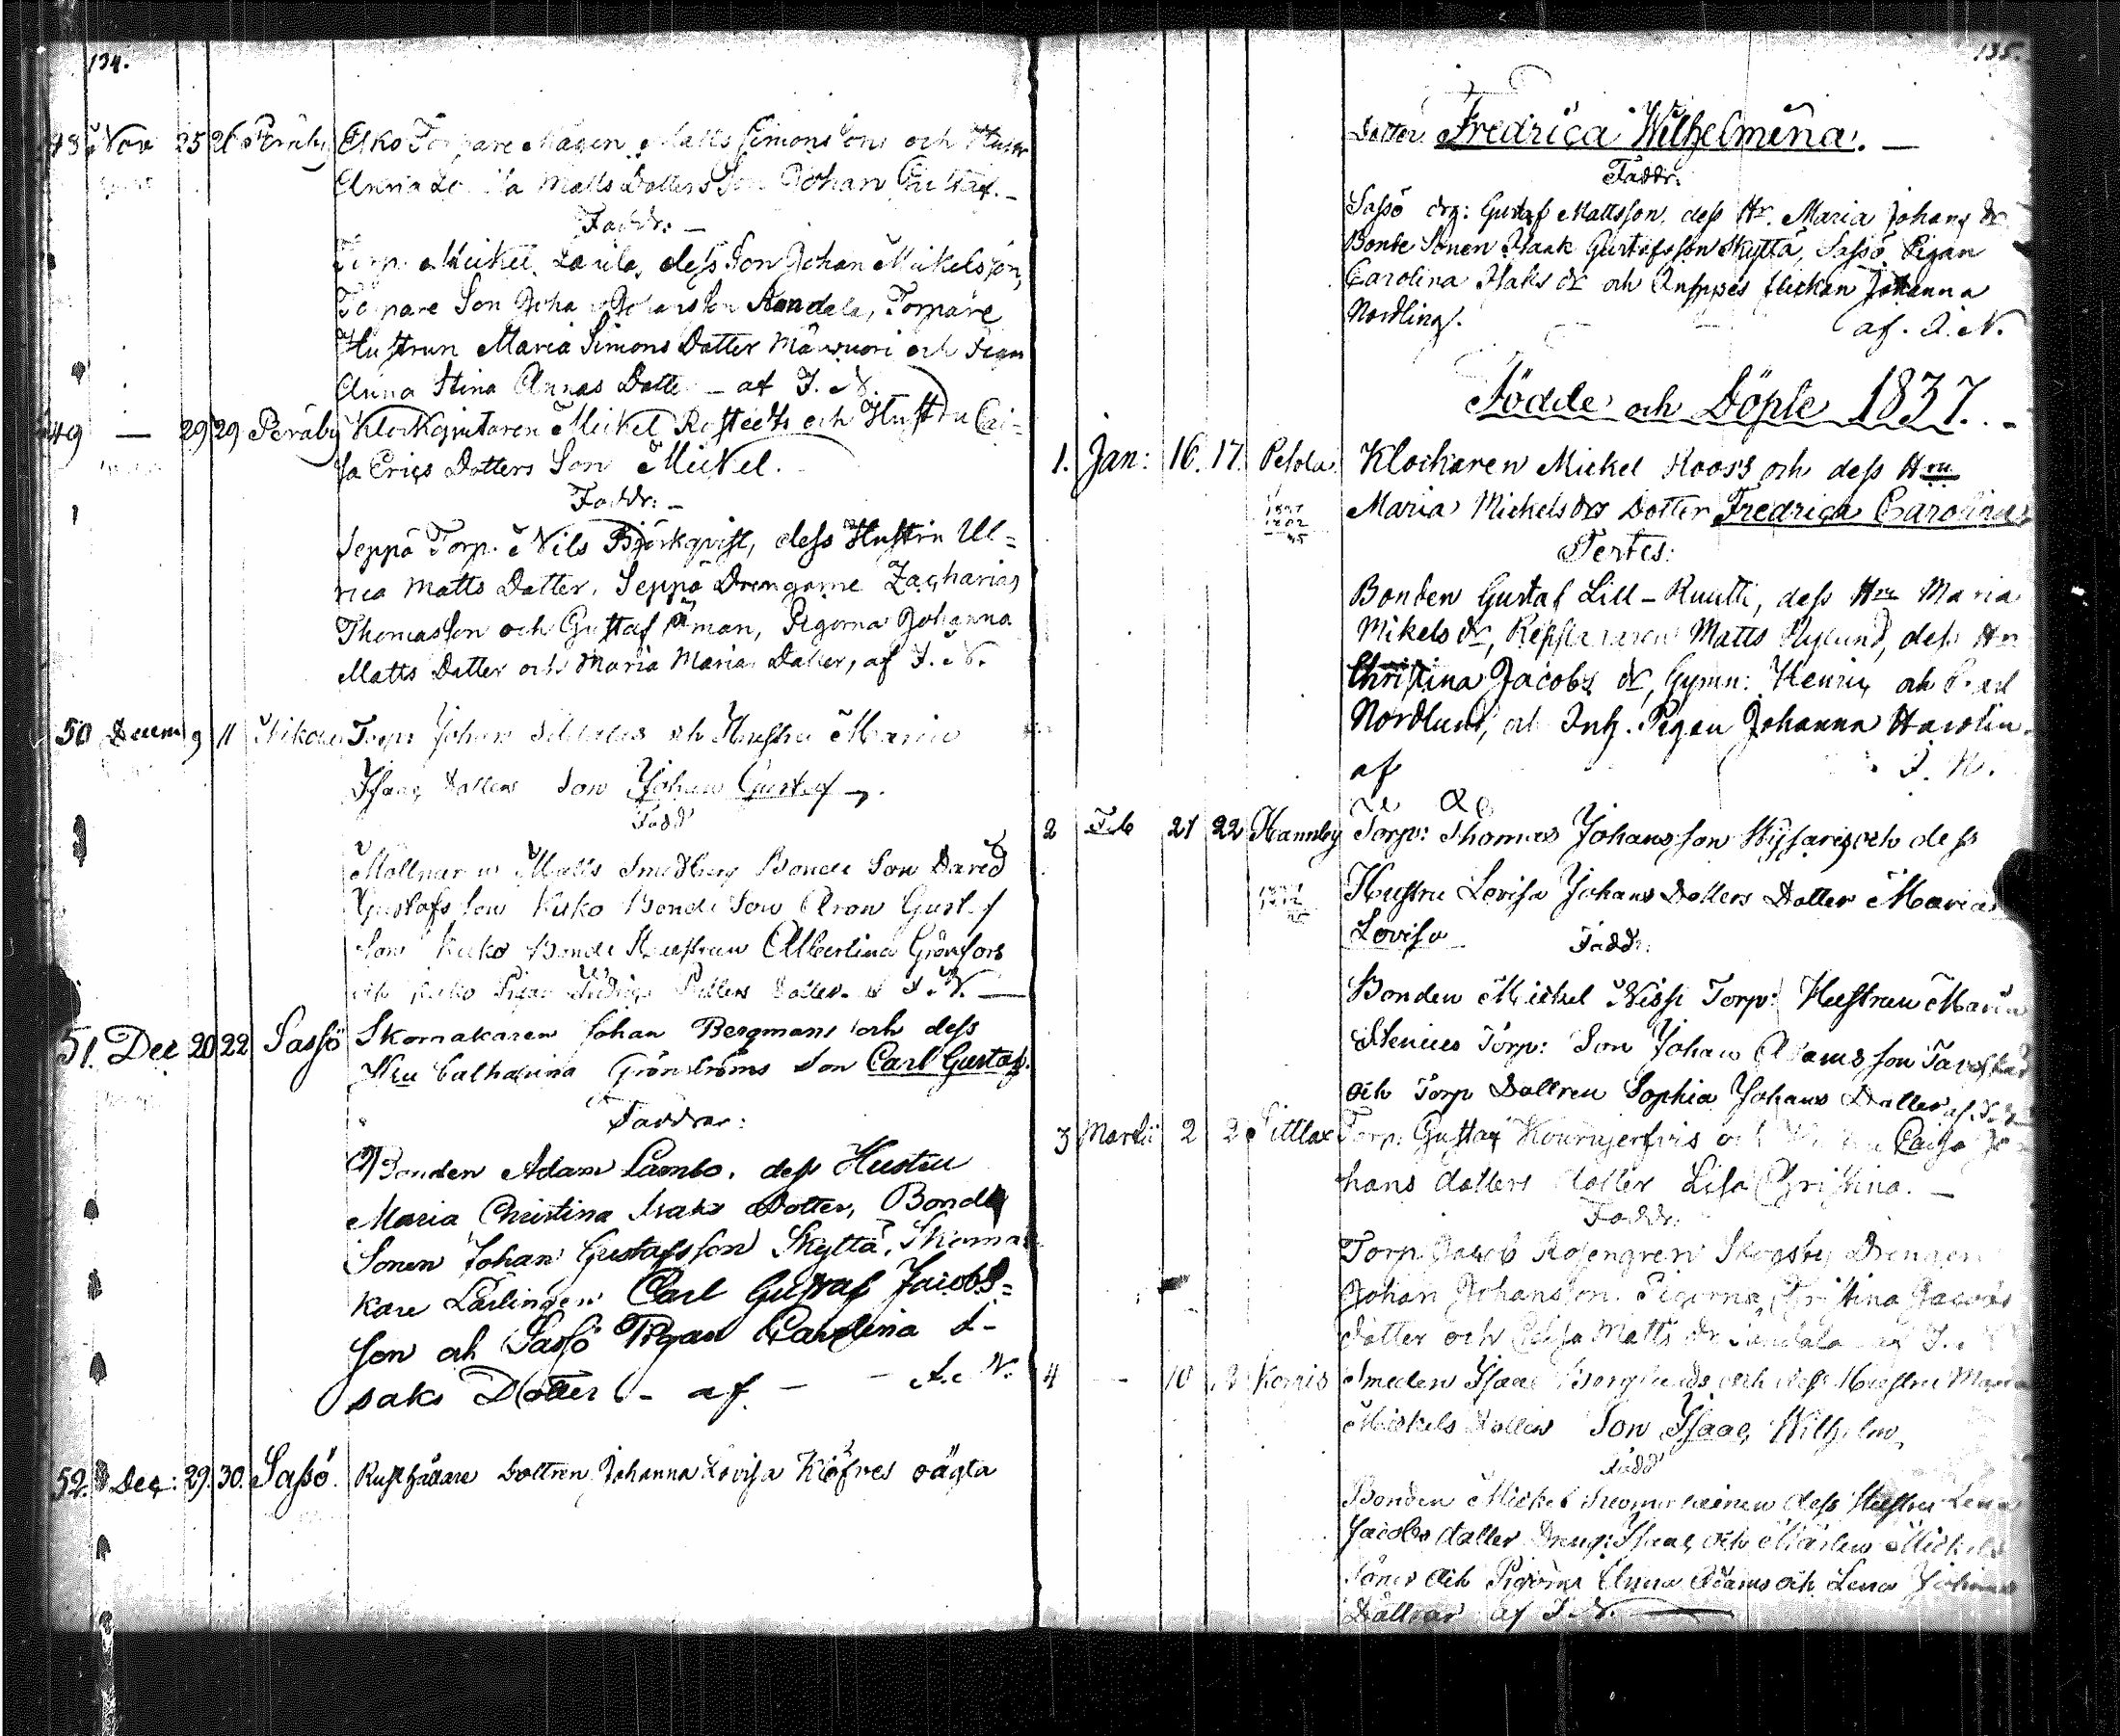 134.
48 Nov 25 26 Peräby Esko Torpare Mågen Matts Simonssons och Hustr
Anna Matts Dotters Son Johan Gustaf. -
Faddr: -
Torp. Mickel Laurila, dess Son Johan Mickelsson,
Torpare Son Johan Johansson Aondela, Torpare
Hustrun Maria Simons Dotter och Pigan
Anna Stina Annas Dotter - af J. N.
49 - 29 29 Peräby Klockgjutaren Mickel Rostedts och Hustru Cai=
sa Erics Dotters Son Mickel.
Faddr: -
Seppä Torp. Nils Björkqvist, dess Hustru Ul=
rica Matts Dotter, Seppä Drengarne Zacharias
Thomasson och Gustaf Öman, Pigorna Johanna
Matts Dotter och Maria Marias Dotter, af J. N.
50 Decem 9 11 Torp: Johan och Hustru Maria
Isaac Dotters Son Johan Gustaf.
Fadd
Möllnaren Matts Smedberg Bonde Son David
Gustafs Son Kisko Bonde Son Aron Gustaf
Son Kisko Bonde Hustrun Albertina Grönfors
och Kisko Pigan Dotter af J. N. -
51. Dec 20 22 Sassö Skomakaren Johan Bergmans och dess
Hru Catharina Grönströms Son Carl Gustaf.
Faddrar:
Bonden Adam Lambo, dess Hustru
Maria Christina Isaks Dotter, Bonde
Sonen Johan Gustafsson Skyttä, Skoma
kare Lärlingen Carl Gustaf Jacobs=
son och Sassö Pigan Carolina I-
saks Dotter - af - - J. N.
52. Dec: 29. 30. Sassö. Rusthållare Dottren Johanna Lovisa Klöfves oägta
135.
Dotter Fredrica Wilhelmina. -
Faddr:
Sassö drg: Gustaf Mattsson, dess Hr. Maria Johans dr
Bonde Sonen Isaak Gustafsson Skyttä, Sassö Pigan
Carolina Isaks dr och Inhyses flickan Johanna
Nordling. af. J. N.
Födde och Döpte 1837.
1. Jan: 16. 17. Pesola Klockaren Mickel Rooss och dess Hru
Maria Mickelsdrs Dotter Fredrica Carolina
Testes:
Bonden Gustaf Lill-Ruutti, dess Hru Maria
Mikels dr, Matts Nylund, dess Hru
Christina Jacobs dr, Gymn: Henric och Carl
Nordlund, och Inh. Pigan Johanna
af J. N.
2 Feb 21 22 Hannby Torp: Thomas Johansson och dess
Hustru Lovisa Johans Dotters Dotter Maria
Lovisa Faddr:
Bonden Mickel Nissi Torp: Hustrun Maria
Stenius Torp: Son Johan Adamsson
och Torp Dottren Sophia Johans Dotter af. J. N.
3 Martii 2 2 Pittlax Torp: Gustaf och Hustru Caisa Jo
hans dotters dotter Lisa Christina. -
Faddr:
Torp. Jacob Rosengren Skogsby Drengen
Johan Johansson. Pigorna Christina Jacobs
dotter och Caisa Matts dr af J. N.
4 - 10 Korris Smeden Isaac Berglunds och dess Hustru Maria
Mickels Dotters Son Isaac Wilhelm
Fadd
Bonden Mickel dess Hustru Lena
Jacobs dotter Dreng: Isaac och Mickels
Söner och Pigorna Anna Adams och Lena Johans
Döttrar af J. N.